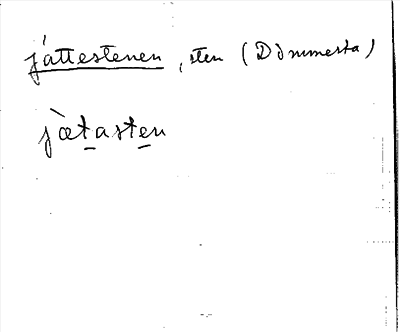 jättestenen, sten (Dömmesta)
jætasten